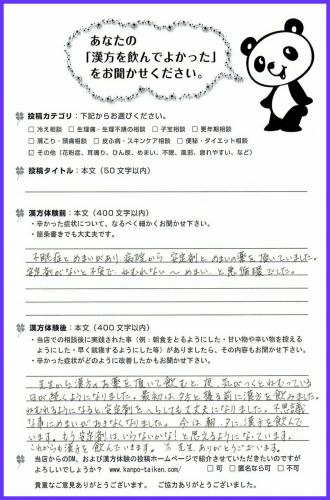 あなたの
「漢方を飲んでよかった」
をお聞かせください。
投稿カテゴリ：下記からお選びください。
□ 冷え相談 □ 生理痛・生理不順の相談 □ 子宝相談 □ 更年期相談
□ 肩こり・頭痛相談 □ 皮ふ病・スキンケア相談 □ 便秘・ダイエット相談
☑ その他（花粉症、耳鳴り、ひん尿、めまい、不眠、風邪、疲れやすい、など）
投稿タイトル：本文（50 文字以内）
漢方体験前：本文（400 文字以内）
・辛かった症状について、なるべく細かくお聞かせ下さい。
・箇条書きでも大丈夫です。
不眠症とめまいがあり、病院から安定剤とめまいの薬を頂いていました。
安定剤がないと不安で、ねむれない〜めまい、と悪循環でした。
漢方体験後：本文（400 文字以内）
・当店での相談後に実践された事（例：朝食をとるようにした・甘い物や辛い物を控える
ようにした・早く就寝するようにした等）がありましたら、その内容もお聞かせ下さい。
・辛かった症状がどのように改善したかもお聞かせ下さい。
先生から漢方のお薬を頂いて飲むと、夜、気がつくとねむっている
日が続くようになりました。最初は、夕方と寝る前に漢方を飲みました。
ねむれるようになると安定剤をへらしても大丈夫になりました。不思議
な事にめまいがおきなくなりました。今は朝、夕に漢方を飲んで
います。もう安定剤はいらないかな！と思えるようになっています。
これからも漢方を飲んでいきます。先生ありがとうございます。
当店からのDM、および漢方体験の投稿ホームページで紹介させていただきたいのですが
よろしいでしょうか？ www.kanpo-taiken.com/ □ 可 □ 匿名なら可 □ 不可
貴重なご意見ありがとうございます。 ご協力ありがとうございました。